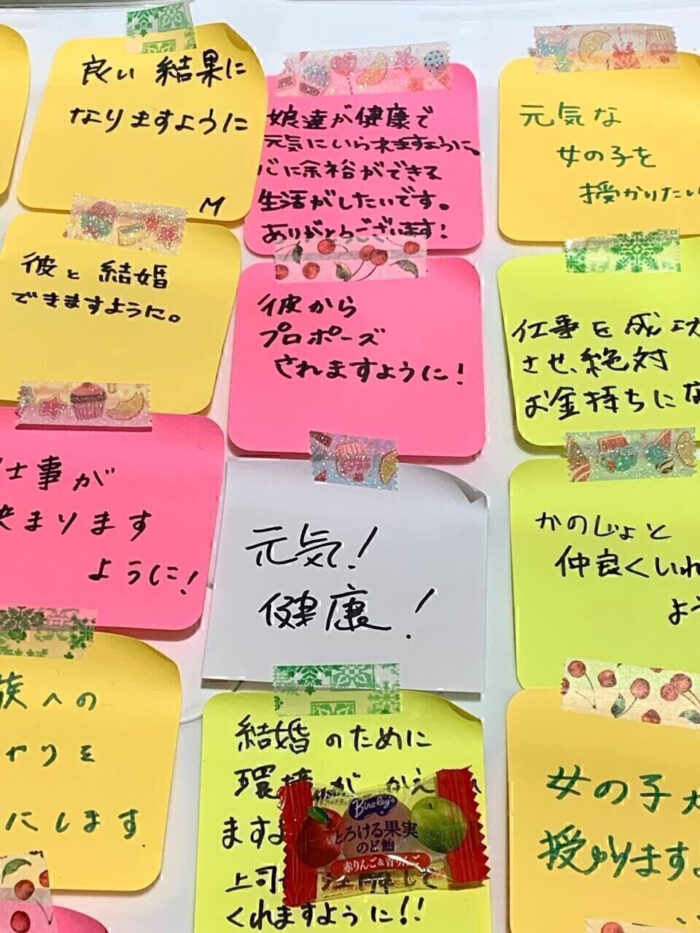 良い 結果に
なりますように
M
娘達が健康で
元気にいられますように。
心に余裕ができて
生活がしたいです。
ありがとうございます!
元気な
女の子を
授かりたい
彼と 結婚
できますように。
彼から
プロポーズ
されますように!
仕事を成功
させ、絶対
お金持ちにな
仕事が
決まります
ように!
元気!
健康!
かのじょと
仲良くいれ
よう
族への
にします
結婚のために
環境が かえ
ますよ
上司
くれますように!!
Bireley's
とろける果実
のど飴
赤りんご&青りんご
女の子が
授かります